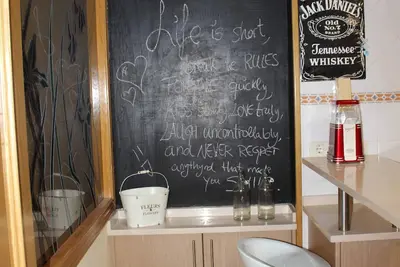 Life is short,
Break the RULES
FORGIVE quickly,
Kiss slowly, LOVE truly,
LAUGH uncontrollably,
and NEVER REGRET
anything that made
you SMILE
JACK DANIEL'S
OLD
No. 7
BRAND
Tennessee
WHISKEY
FLEURS